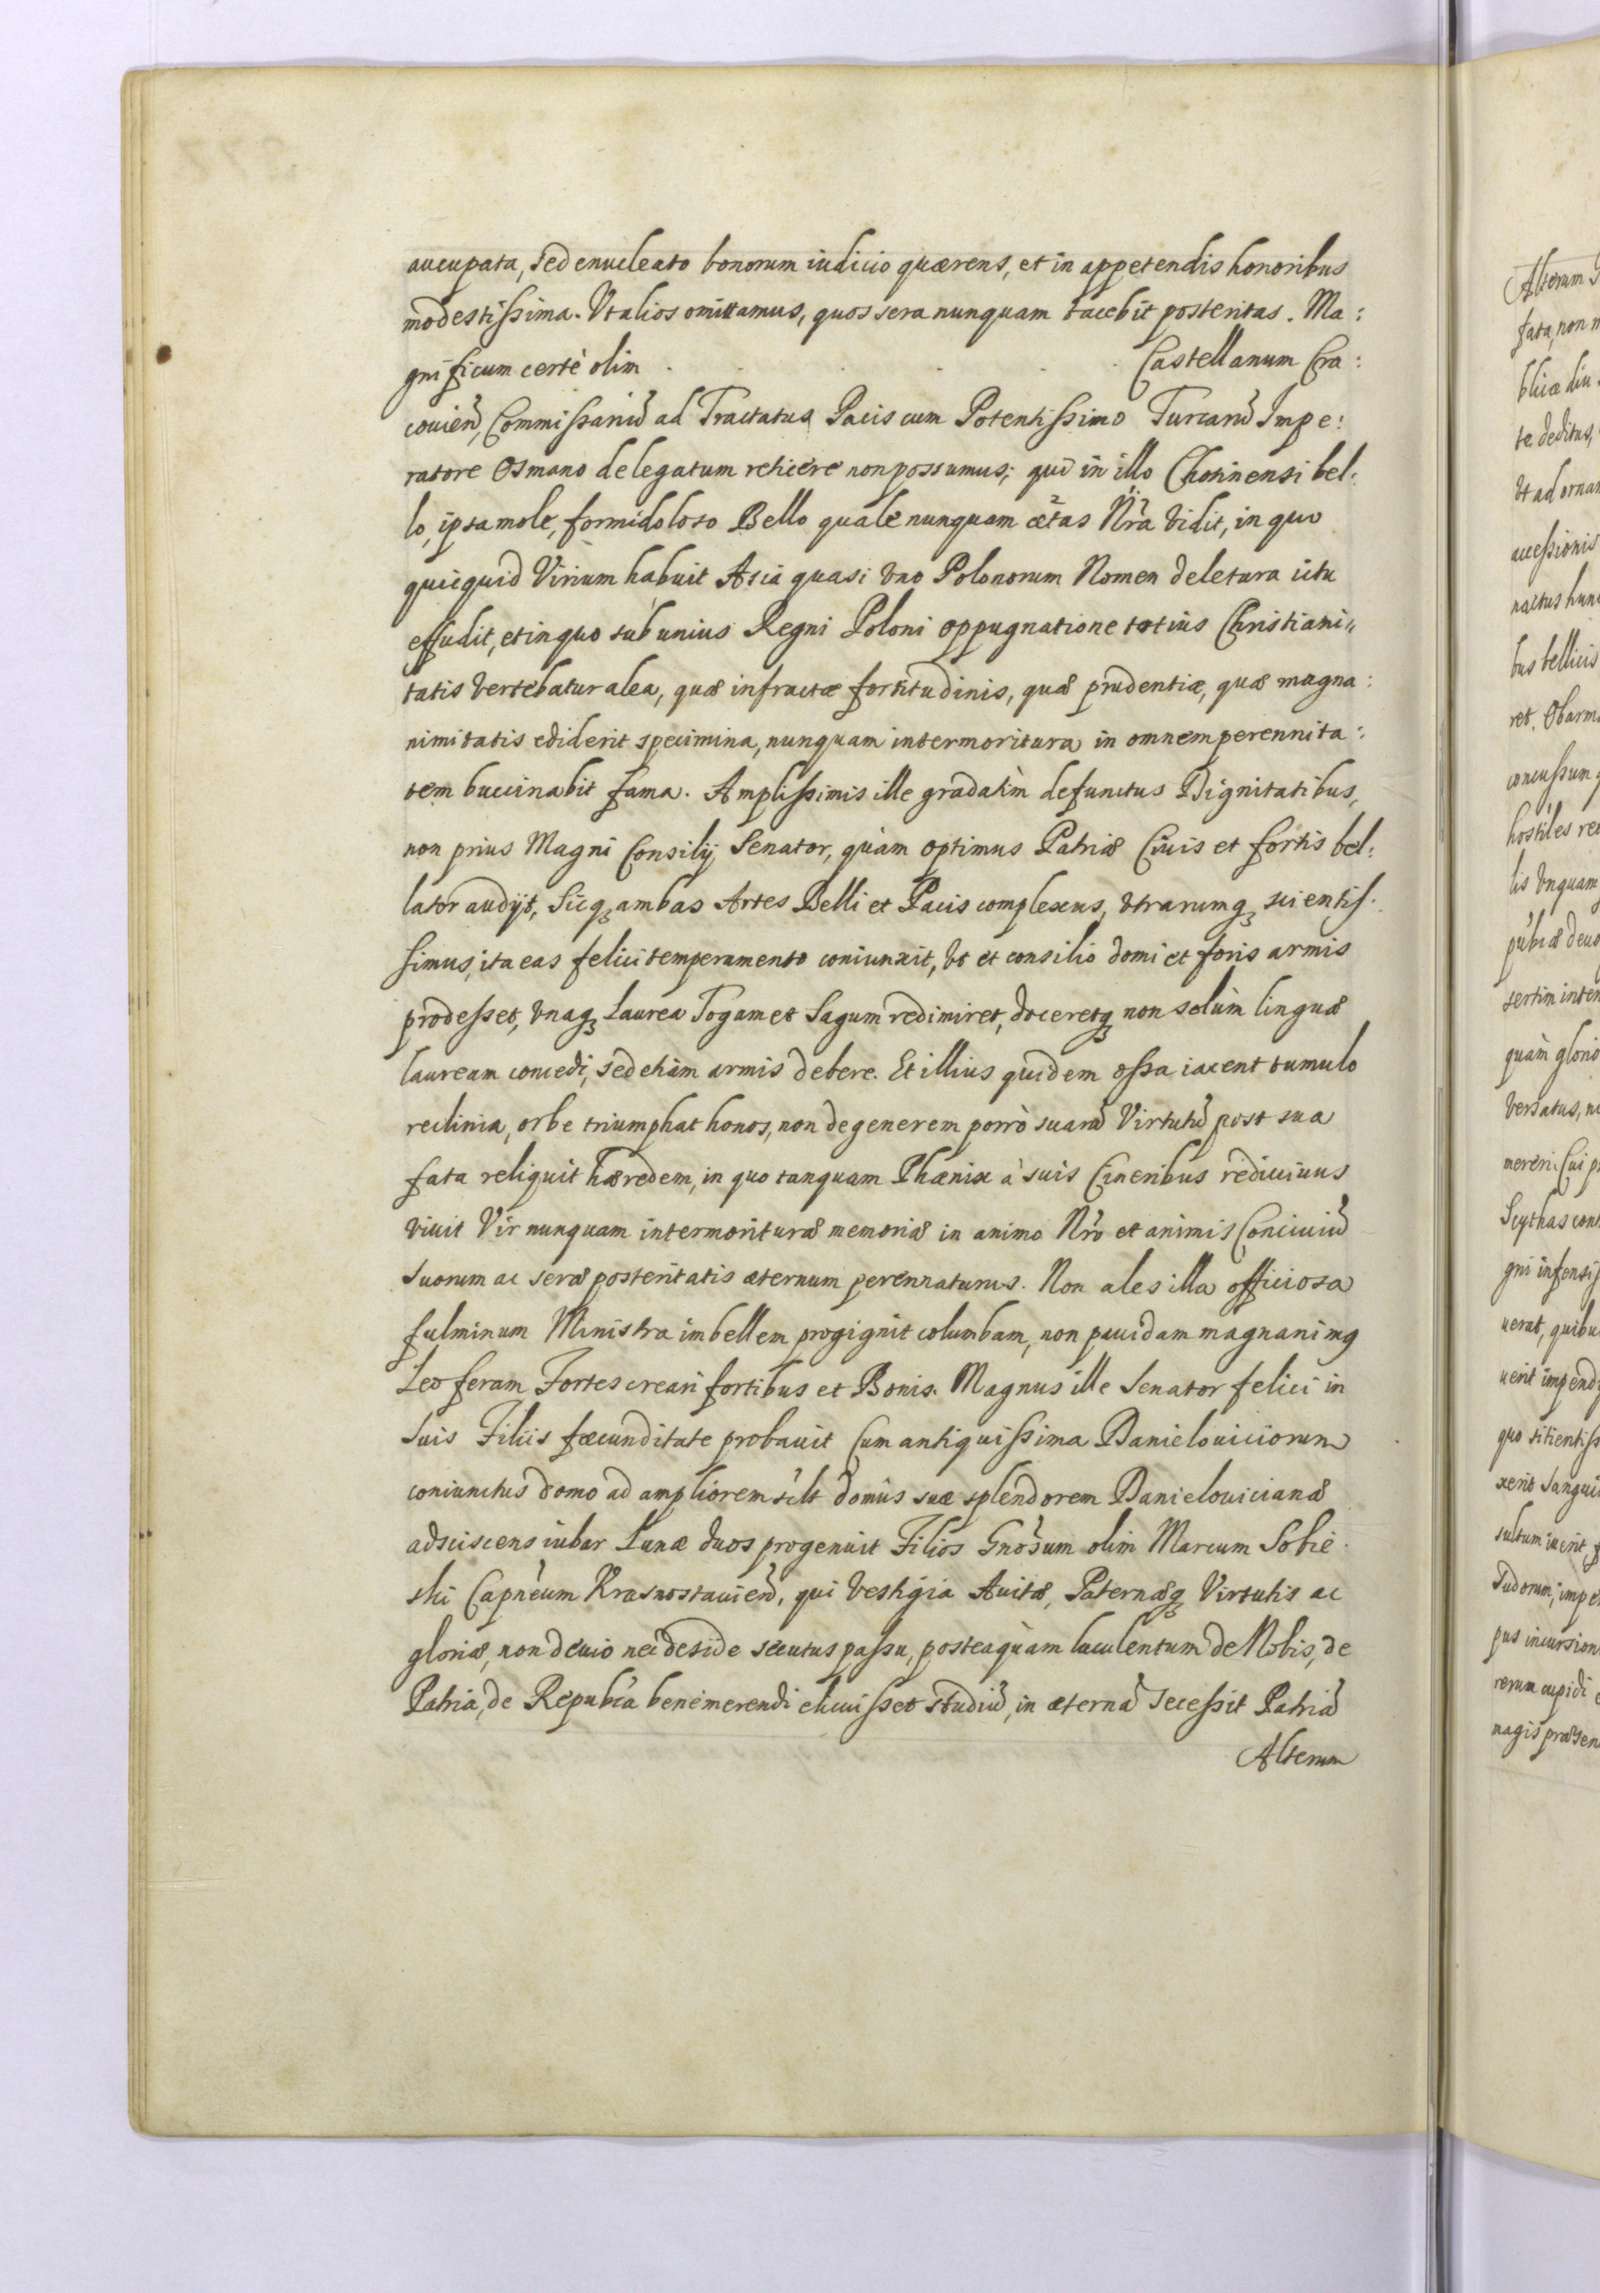 aucupata, sed enucleato bonorum iudicio quærens, et in appetendis honoribus
modestissima. Vt alios omittamus, quos sera nunquam tacebit posteritas. Ma:
gnificum certè olim . . . . Castellanum Cra:
couień, Commissariũ ad Tractatus Pacis cum Potentissimo Turcarũ Impe:
ratore Osmano delegatum reticere non possumus; qui in illo Chotinensi bel:
lo, ipsa mole, formidoloso Bello quale nunquam ætas Nr̃a vidit, in quo
quicquid Virium habuit Asia quasi vno Polonorum Nomen deletura ictu
effudit, et in quo sub unius Regni Poloni oppugnatione totius Christiani„
tatis vertebatur alea, quæ infractæ fortitudinis, quæ prudentiæ, quæ magna:
nimitatis ediderit specimina, nunquam intermoritura in omnem perennita:
tem buccinabit fama. Amplissimis ille gradatìm defunctus Dignitatibus,
non prius Magni Consilij Senator, quàm optimus Patriæ Ciuis et fortis bel:
lator audijt, Sicq₃ ambas Artes Belli et Pacis complexus, vtrarumq₃ scientis:
simus, ita eas felici temperamento coniunxit, vt et consilio domi et foris armis
prodesset, vnaq₃ Laurea Togam et Sagum redimiret, doceretq₃ non solùm linguæ
lauream concedi, sed etiàm armis debere. Et illius quidem ossa iacent tumulo
reclinia, orbe triumphat honos, non degenerem porrò suarũ Virtutũ post sua
fata reliquit hæredem, in quo tanquam Phænix à suis Cineribus rediuiuus
viuit Vir nunquam intermorituræ memoriæ in animo Nr̃o et animis Conciuiũ
suorum ac seræ posteritatis æternum perennaturus. Non ales illa officiosa
fulminum Ministra imbellem progignit columbam, non pauidam magnanimq
Leo feram Fortes creari fortibus et Bonis. Magnus ille Senator felici in
suis Filiis fæcunditate probauit Cum antiquissima Danielouiciorum
coniunctus domo ad ampliorem scilt domûs suæ splendorem Danielouicianæ
adsciscens iubar Lunæ duos progenuit Filios Gnõsum olim Marcum Sobie:
ski Capnèum Krasnostauień, qui vestigia Auitæ, Paternæq₃ Virtutis ac
gloriæ, non deuio nec deside secutus passu, posteaquàm luculentum de Nobis, de
Patria, de Repubca benemerendi eluxisset studiũ, in æternã secessit Patriã
Alterum